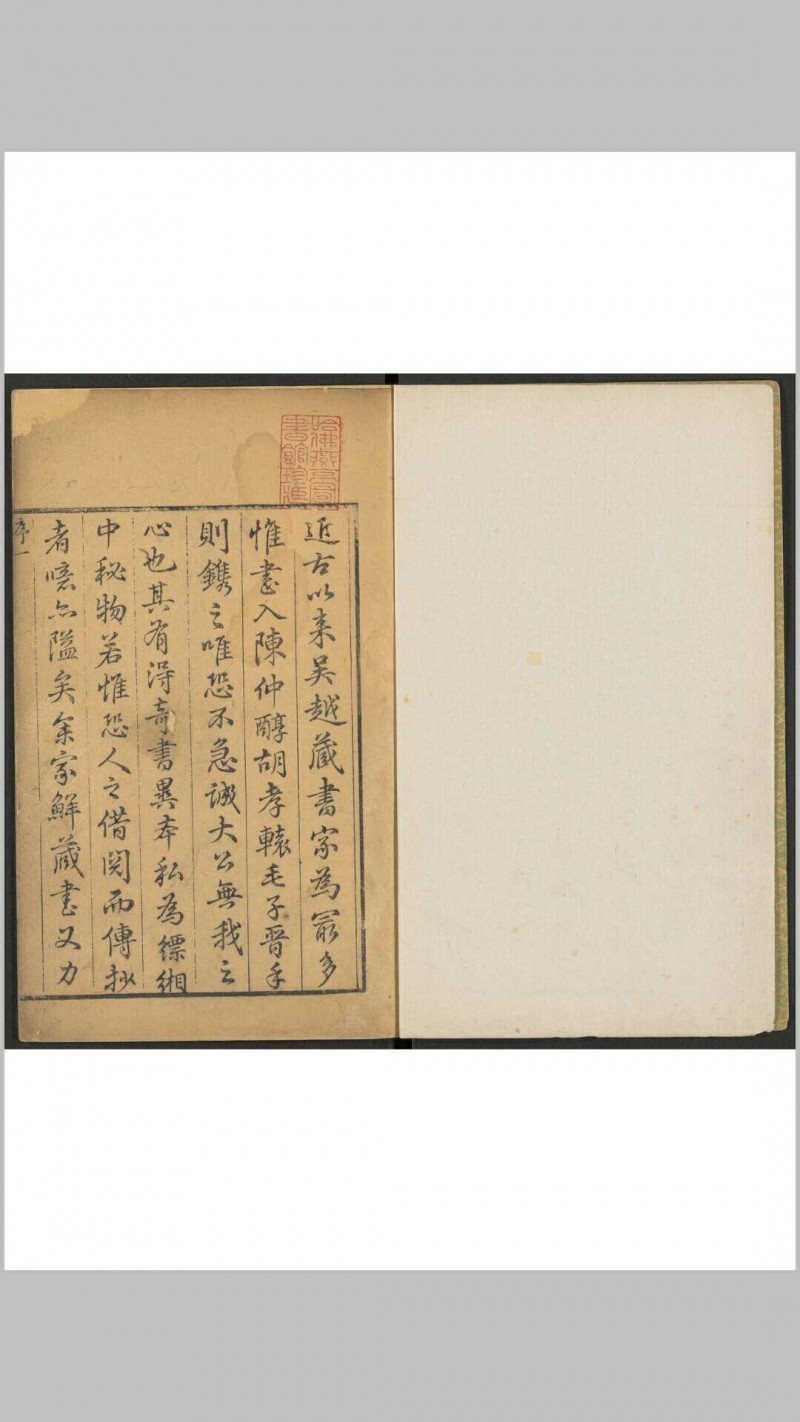 近古以来吴越藏書家為最多
惟書入陳仲醇胡孝轅毛子晋手
則鐫之唯恐不急誠大公無我之
心也其有得奇書異本私為縹緗
中秘物若惟恐人之借閱而傳抄
者噫亦隘矣余家鮮藏書又力
序一
哈佛燕京圖
書館珍藏